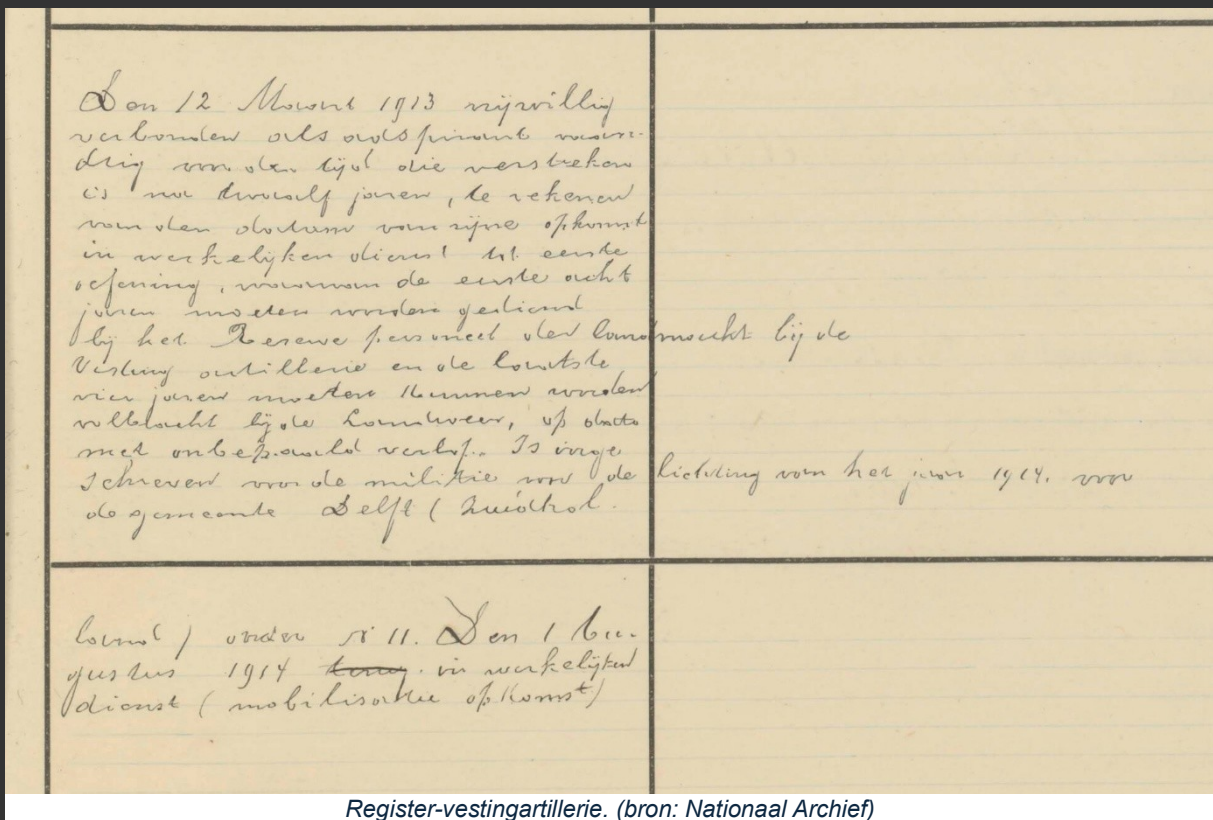 Den 12 Maart 1913 vrijwillig
verbonden als adspirant vaan-
drig voor den tijd die verstreken
is na twaalf jaren, te rekenen
van den datum van zijne opkomst
in werkelijken dienst tot eerste
oefening, waarvan de eerste acht
jaren moeten worden gediend
bij het Reserve personeel der landmacht bij de
Vesting artillerie en de laatste
vier jaren moeten kunnen worden
volbracht bij de Landweer, op dato
met onbepaald verlof. Is inge
schreven voor de militie voor de lichting van het jaar 1914. voor
de gemeente Delft (Zuidhol.
land) onder N 11. Den 1 Au-
gustus 1914 in werkelijken
dienst (mobilisatie opkomst)
Register-vestingartillerie. (bron: Nationaal Archief)